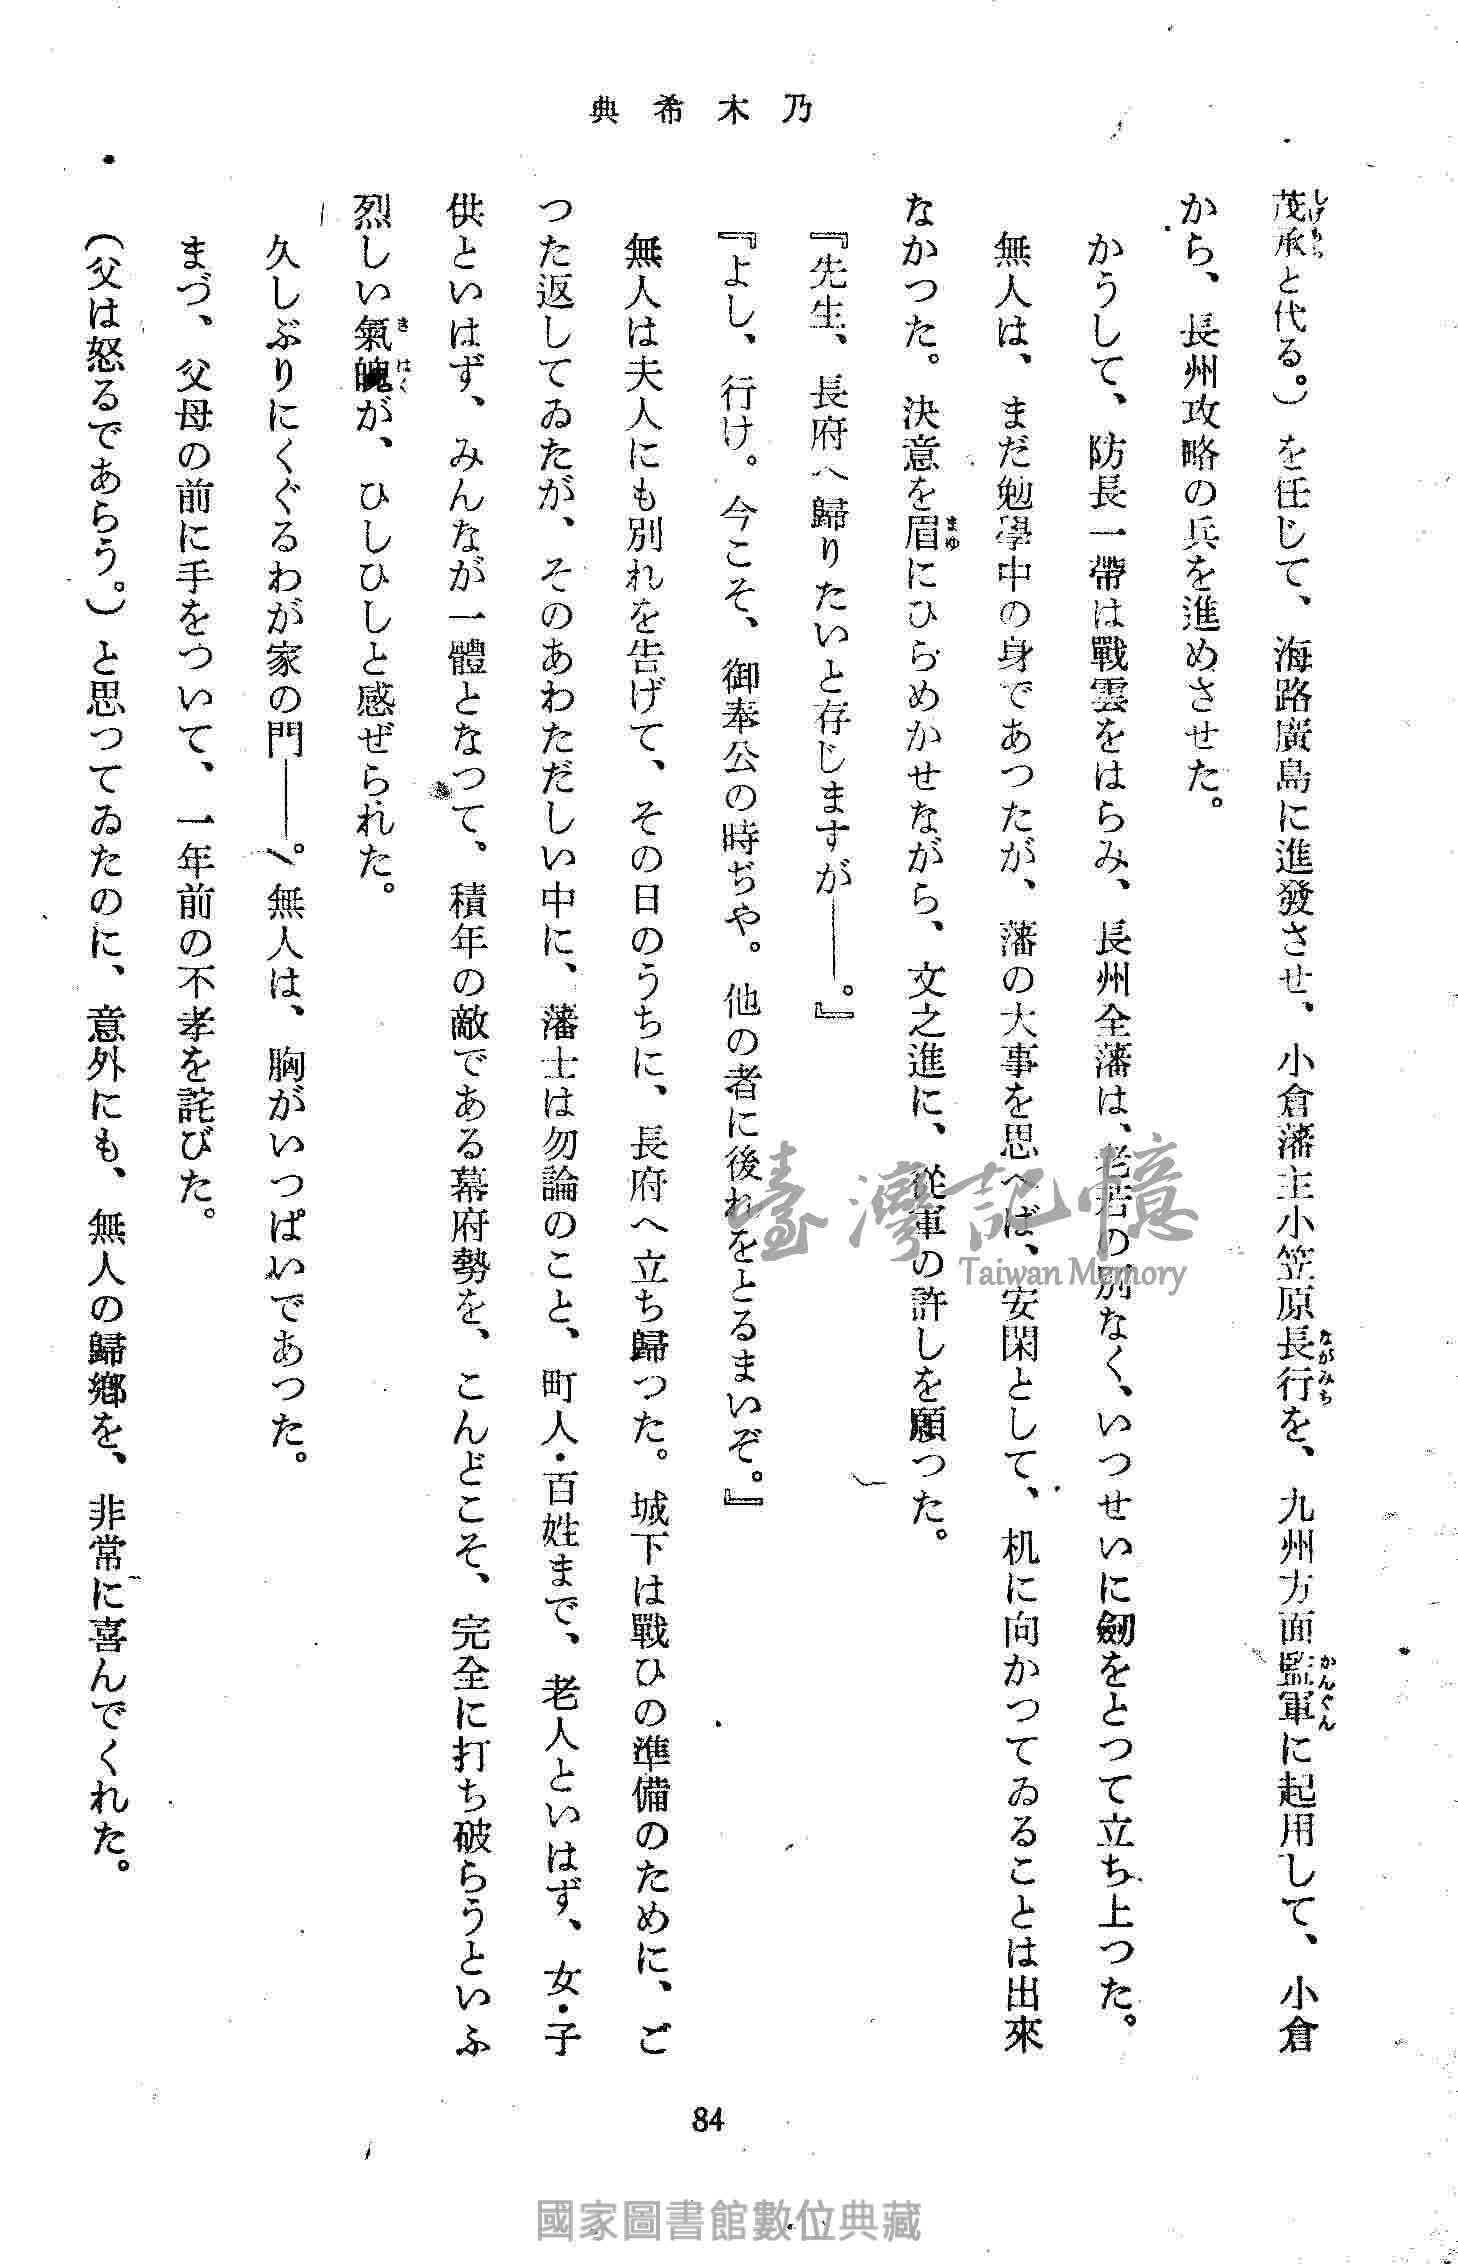 乃木希典
茂承と代る。）を任じて、海路廣島に進發させ、小倉藩主小笠原長行を、九州方面監軍に起用して、小倉
から、長州攻略の兵を進めさせた。
かうして、防長一帶は戰雲をはらみ、長州全藩は、老若の別なく、いつせいに劒をとつて立ち上つた。
無人は、まだ勉學中の身であつたが、藩の大事を思へば、安閑として、机に向かつてゐることは出來
なかつた。決意を眉にひらめかせながら、文之進に、從軍の許しを願つた。
『先生、長府へ歸りたいと存じますが――。』
『よし、行け。今こそ、御奉公の時ぢや。他の者に後れをとるまいぞ。』
無人は夫人にも別れを告げて、その日のうちに、長府へ立ち歸つた。城下は戰ひの準備のために、ご
つた返してゐたが、そのあわただしい中に、藩士は勿論のこと、町人・百姓まで、老人といはず、女・子
供といはず、みんなが一體となつて、積年の敵である幕府勢を、こんどこそ、完全に打ち破らうといふ
烈しい氣魄が、ひしひしと感ぜられた。
久しぶりにくぐるわが家の門――。無人は、胸がいつぱいであつた。
まづ、父母の前に手をついて、一年前の不孝を詫びた。
（父は怒るであらう。）と思つてゐたのに、意外にも、無人の歸鄕を、非常に喜んでくれた。
84
臺灣記憶
Taiwan Memory
國家圖書館數位典藏